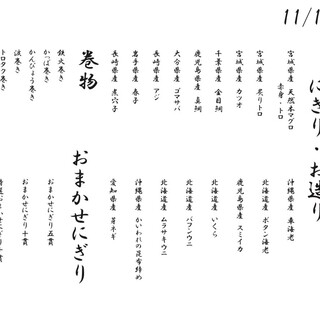 11/1
にぎり・お造り
宮城県産 天然本マグロ
赤身・トロ
宮城県産 炙りトロ
宮城県産 カツオ
千葉県産 金目鯛
鹿児島県産 真鯛
大分県産 ゴマサバ
長崎県産 アジ
岩手県産 春子
長崎県産 煮穴子
沖縄県産 車海老
北海道産 ボタン海老
鹿児島県産 スミイカ
北海道産 いくら
北海道産 バフンウニ
北海道産 ムラサキウニ
沖縄県産 かいわれの昆布締め
愛知県産 芽ネギ
巻物
鉄火巻き
かっぱ巻き
かんぴょう巻き
涙巻き
トロタク巻き
おまかせにぎり
おまかせにぎり五貫
おまかせにぎり十貫